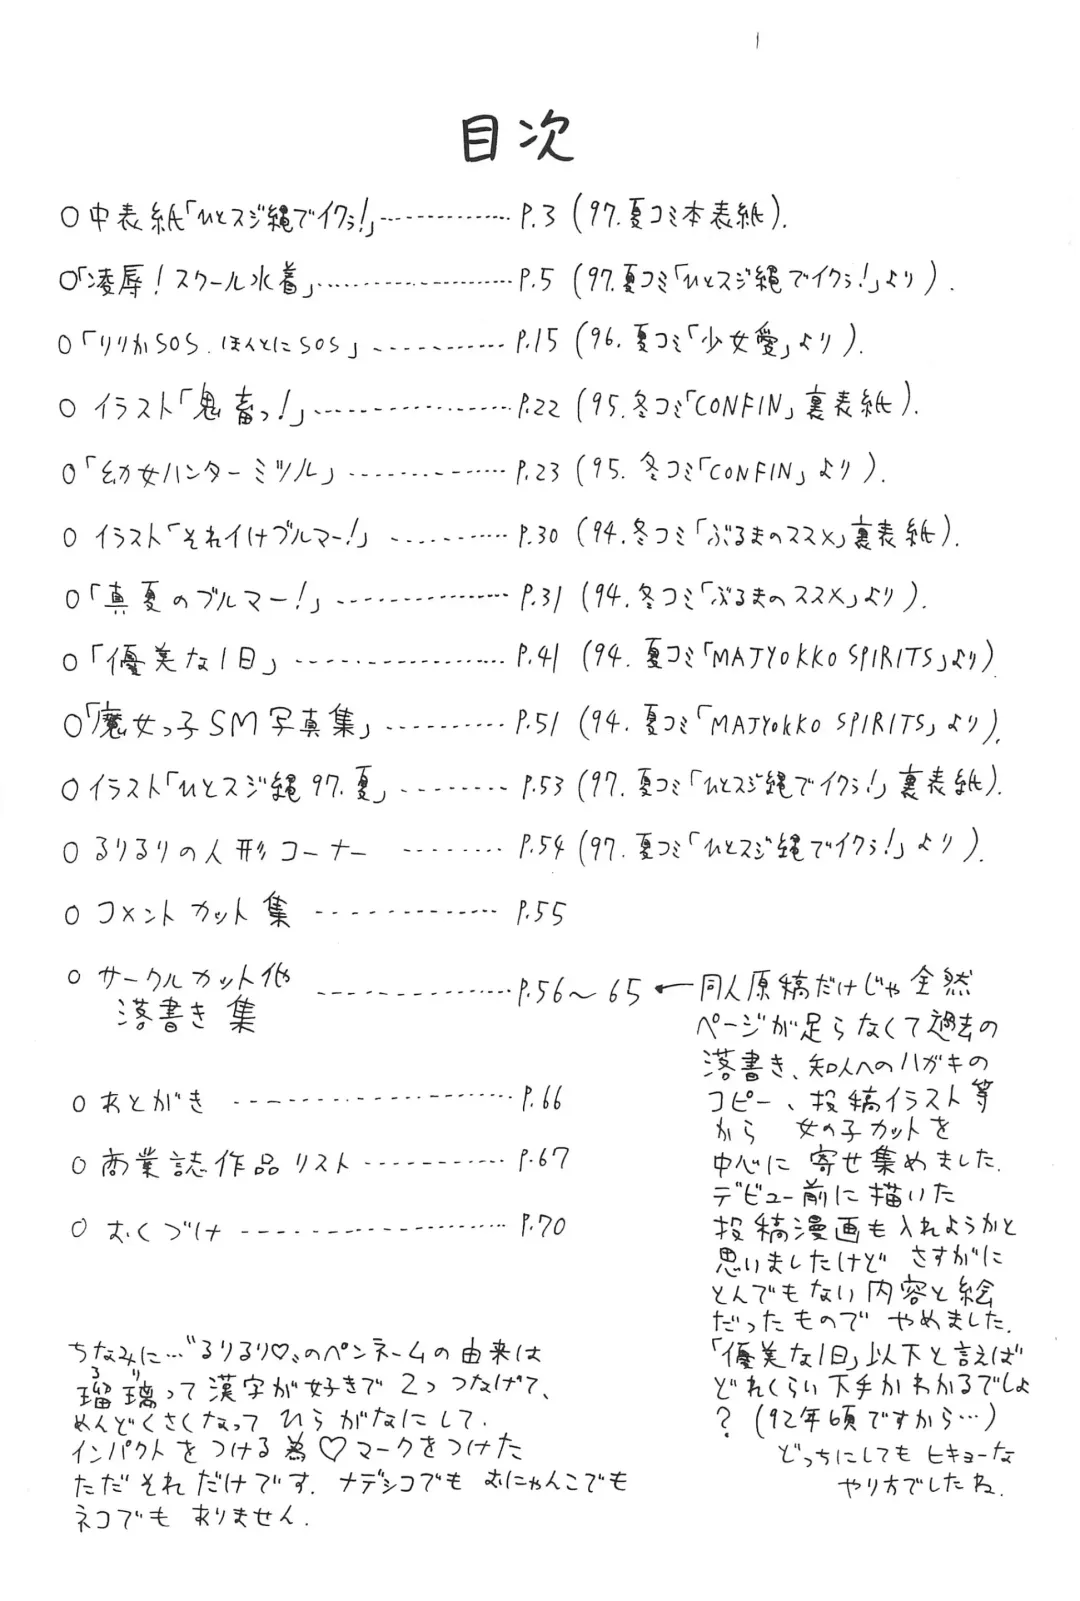 1
目次
○中表紙「ひとスジ縄でイクぅ!」 P.3 (97.夏コミ本表紙).
○「凌辱!スクール水着」 P.5 (97.夏コミ「ひとスジ縄でイクぅ!」より).
○「りりかSOS.ほんとにSOS」 P.15 (96.夏コミ「少女愛」より).
○イラスト「鬼畜っ!」 P.22 (95.冬コミ「CONFIN」裏表紙).
○「幼女ハンターミツル」 P.23 (95.冬コミ「CONFIN」より).
○イラスト「それイけブルマー!」 P.30 (94.冬コミ「ぶるまのススメ」裏表紙).
○「真夏のブルマー!」 P.31 (94.冬コミ「ぶるまのススメ」より).
○「優美な1日」 P.41 (94.夏コミ「MAJYOKKO SPIRITS」より)
○「魔女っ子SM写真集」 P.51 (94.夏コミ「MAJYOKKO SPIRITS」より).
○イラスト「ひとスジ縄97.夏」 P.53 (97.夏コミ「ひとスジ縄でイクぅ!」裏表紙).
○るりるりの人形コーナー P.54 (97.夏コミ「ひとスジ縄でイクぅ!」より).
○コメントカット集 P.55
○サークルカット他
落書き集 P.56〜65
←同人原稿だけじゃ全然
ページが足らなくて過去の
落書き、知人へのハガキの
コピー、投稿イラスト等
から 女の子カットを
中心に寄せ集めました.
デビュー前に描いた
投稿漫画も入れようかと
思いましたけど さすがに
とんでもない内容と絵
だったもので やめました.
「優美な1日」以下と言えば
どれくらい下手かわかるでしょ
?(92年頃ですから…)
どっちにしても ヒキョーな
やり方でしたね.
○あとがき P.66
○商業誌作品リスト P.67
○おくづけ P.70
ちなみに…"るりるり♡"のペンネームの由来は
るり
瑠璃って漢字が好きで2つつなげて、
めんどくさくなって ひらがなにして.
インパクトをつける為♡マークをつけた
ただそれだけです. ナデシコでも むにゃんこでも
ネコでも ありません.